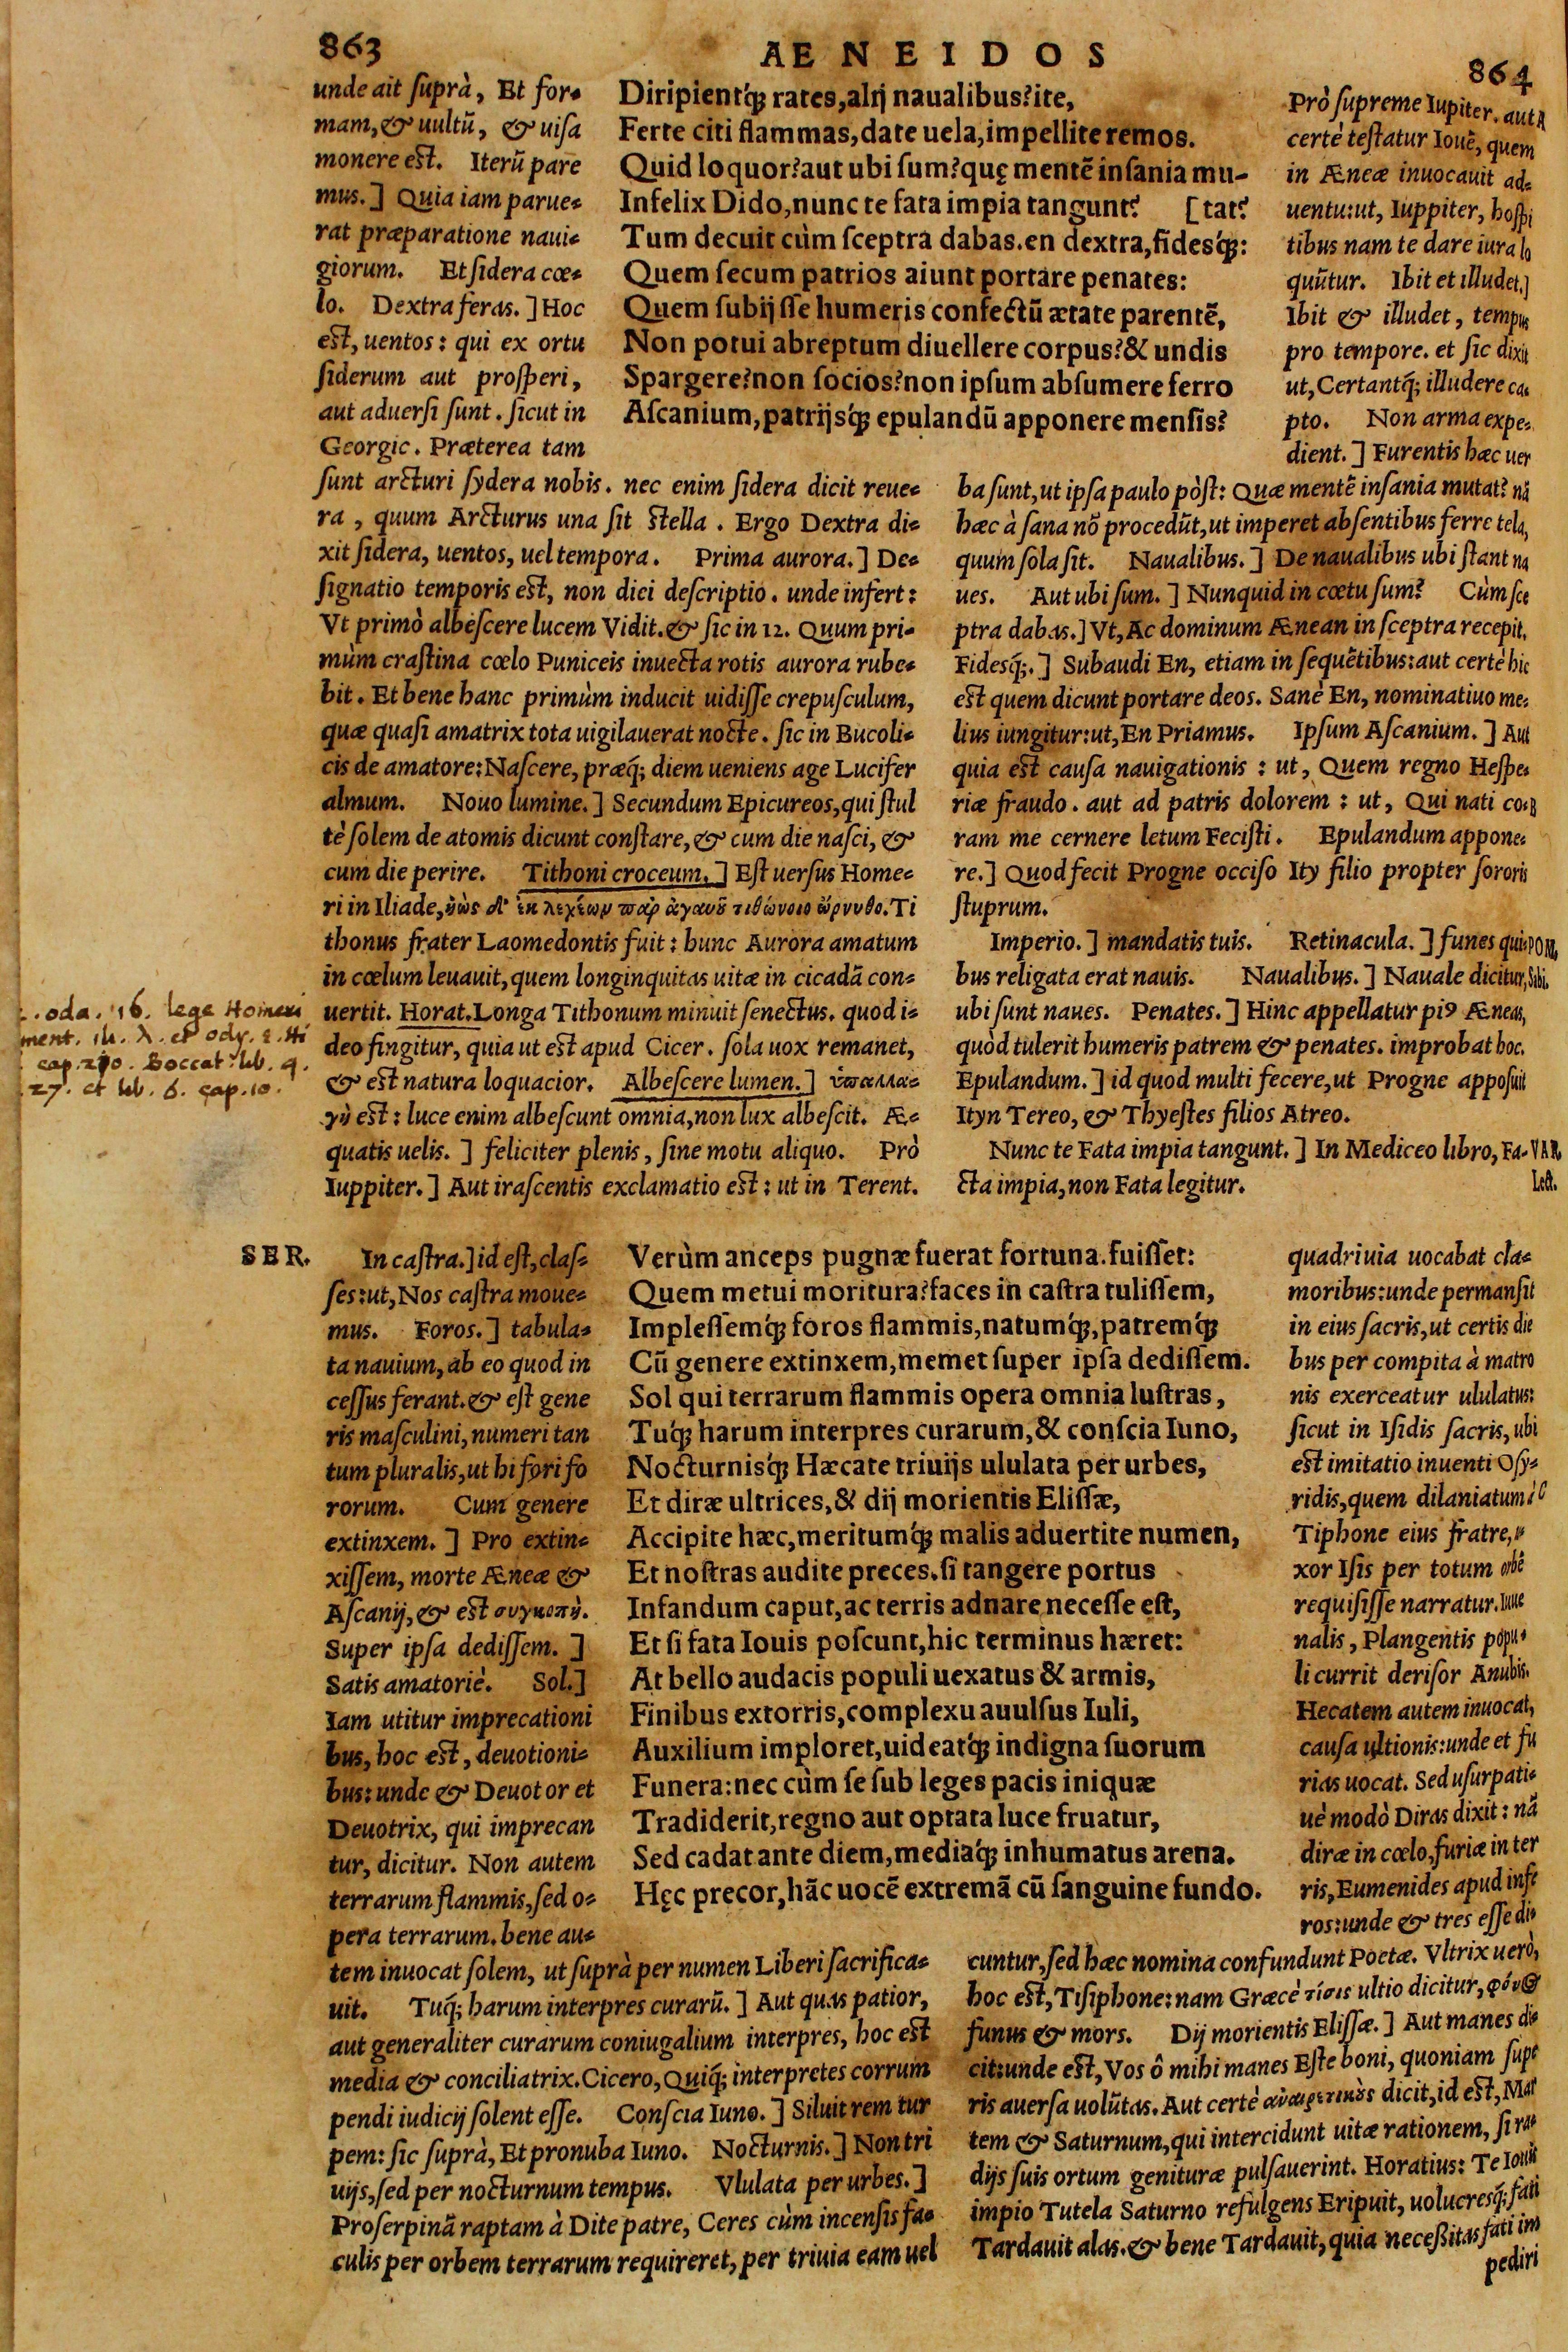 863
AENEIDOS
864
unde ait suprà, Et for-
mam, & uultũ, & uisa
monere est. Iterũ pare
mus.] Quia iam parue-
rat præparatione naui-
giorum. Et sidera cœ-
lo. Dextra feras.] Hoc
est, uentos: qui ex ortu
siderum aut prosperi,
aut aduersi sunt. sicut in
Georgic. Præterea tam
Diripientq́ꝫ rates, alij naualibus? ite,
Ferte citi flammas, date uela, impellite remos.
Quid loquor? aut ubi sum? quę mentẽ insania mu-
Infelix Dido, nunc te fata impia tangunt? [tat?
Tum decuit cùm sceptra dabas. en dextra, fidesq́ꝫ:
Quem secum patrios aiunt portare penates:
Quem subijsse humeris confectũ ætate parentẽ,
Non potui abreptum diuellere corpus? & undis
Spargere? non socios? non ipsum absumere ferro
Ascanium, patrijsq́ꝫ epulandũ apponere mensis?
Prò supreme Iupiter. aut A
certè testatur Iouẽ, quem
in Æneæ inuocauit ad-
uentu: ut, Iuppiter, hospi
tibus nam te dare iura lo
quũtur. Ibit et illudet.]
Ibit & illudet, tempus
pro tempore. et sic dixit
ut, Certantq́; illudere ca-
pto. Non arma expe-
dient.] Furentis hæc uer
sunt arcturi sydera nobis. nec enim sidera dicit reue-
ra, quum Arcturus una sit stella. Ergo Dextra di-
xit sidera, uentos, uel tempora. Prima aurora.] De-
signatio temporis est, non diei descriptio. unde infert:
Vt primò albescere lucem Vidit. & sic in 12. Quum pri-
mùm crastina cœlo Puniceis inuecta rotis aurora rube-
bit. Et bene hanc primùm inducit uidisse crepusculum,
quæ quasi amatrix tota uigilauerat nocte. sic in Bucoli-
cis de amatore: Nascere, præq́; diem ueniens age Lucifer
almum. Nouo lumine.] Secundum Epicureos, qui stul
tè solem de atomis dicunt constare, & cum die nasci, &
cum die perire. Tithoni croceum.] Est uersus Home-
ri in Iliade, ἠὼς δ' ἐκ λεχέωμ παρ ἀγαυοῦ τιθώνοιο ὤρνυθο. Ti
thonus frater Laomedontis fuit: hunc Aurora amatum
in cœlum leuauit, quem longinquitas uitæ in cicadã con-
uertit. Horat. Longa Tithonum minuit senectus. quod i-
deo fingitur, quia ut est apud Cicer. sola uox remanet,
& est natura loquacior. Albescere lumen.] ὑπαλλα-
γὴ est: luce enim albescunt omnia, non lux albescit. Æ-
quatis uelis.] feliciter plenis, sine motu aliquo. Prò
Iuppiter.] Aut irascentis exclamatio est: ut in Terent.
oda. 16. lege Homeri
cap. 290. Boccat. lib. 9.
27. et lib. 6. cap. 10.
ba sunt, ut ipsa paulo pòst: Quæ mentẽ insania mutat? nã
hæc à sana nõ procedũt, ut imperet absentibus ferre tela,
quum sola sit. Naualibus.] De naualibus ubi stant na
ues. Aut ubi sum.] Nunquid in cœtu sum? Cùm sce
ptra dabas.] Vt, Ac dominum Ænean in sceptra recepit.
Fidesq́;.] Subaudi En, etiam in sequẽtibus: aut certè hic
est quem dicunt portare deos. Sanè En, nominatiuo me-
lius iungitur: ut, En Priamus. Ipsum Ascanium.] Aut
quia est causa nauigationis: ut, Quem regno Hespe-
riæ fraudo. aut ad patris dolorem: ut, Qui nati co- B
ram me cernere letum Fecisti. Epulandum appone-
re.] Quod fecit Progne occiso Ity filio propter sororis
stuprum.
Imperio.] mandatis tuis. Retinacula.] funes qui- POM.
bus religata erat nauis. Naualibus.] Nauale dicitur, Sabi.
ubi sunt naues. Penates.] Hinc appellatur piꝰ Æneas,
quòd tulerit humeris patrem & penates. improbat hoc.
Epulandum.] id quod multi fecere, ut Progne apposuit
Ityn Tereo, & Thyestes filios Atreo.
Nunc te Fata impia tangunt.] In Mediceo libro, Fa- VAR.
cta impia, non Fata legitur. Lect.
SER. In castra.] id est, clas-
ses: ut, Nos castra moue-
mus. Foros.] tabula-
ta nauium, ab eo quod in
cessus ferant. & est gene
ris masculini, numeri tan
tum pluralis, ut hi fori fo
rorum. Cum genere
extinxem.] Pro extin-
xissem, morte Æneæ &
Ascanij, & est συγκοπὴ.
Super ipsa dedissem.]
Satis amatoriè. Sol.]
Iam utitur imprecationi
bus, hoc est, deuotioni-
bus: unde & Deuotor et
Deuotrix, qui imprecan
tur, dicitur. Non autem
terrarum flammis, sed o-
pera terrarum. bene au-
Verùm anceps pugnæ fuerat fortuna. fuisset:
Quem metui moritura? faces in castra tulissem,
Implessemq́ꝫ foros flammis, natumq́ꝫ, patremq́ꝫ
Cũ genere extinxem, memet super ipsa dedissem.
Sol qui terrarum flammis opera omnia lustras,
Tuq́ꝫ harum interpres curarum, & conscia Iuno,
Nocturnisq́ꝫ Hæcate triuijs ululata per urbes,
Et diræ ultrices, & dij morientis Elissæ,
Accipite hæc, meritumq́ꝫ malis aduertite numen,
Et nostras audite preces. si tangere portus
Infandum caput, ac terris adnare necesse est,
Et si fata Iouis poscunt, hic terminus hæret:
At bello audacis populi uexatus & armis,
Finibus extorris, complexu auulsus Iuli,
Auxilium imploret, uideatq́ꝫ indigna suorum
Funera: nec cùm se sub leges pacis iniquæ
Tradiderit, regno aut optata luce fruatur,
Sed cadat ante diem, mediaq́ꝫ inhumatus arena.
Hęc precor, hãc uocẽ extremã cũ sanguine fundo.
quadriuia uocabat cla-
moribus: unde permansit
in eius sacris, ut certis die
bus per compita à matro
nis exerceatur ululatus:
sicut in Isidis sacris, ubi
est imitatio inuenti Osy-
ridis, quem dilaniatum à C
Tiphone eius fratre, u-
xor Isis per totum orbẽ
requisisse narratur. Iuue
nalis, Plangentis popu-
li currit derisor Anubis.
Hecatem autem inuocat,
causa ultionis: unde et fu
rias uocat. Sed usurpati-
uè modò Diras dixit: nã
diræ in cœlo, furiæ in ter
ris, Eumenides apud infe
ros: unde & tres esse di-
tem inuocat solem, ut suprà per numen Liberi sacrifica-
uit. Tuq́; harum interpres curarũ.] Aut quas patior,
aut generaliter curarum coniugalium interpres, hoc est
media & conciliatrix. Cicero, Quiq́; interpretes corrum
pendi iudicij solent esse. Conscia Iuno.] Siluit rem tur
pem: sic suprà, Et pronuba Iuno. Nocturnis.] Non tri
uijs, sed per nocturnum tempus. Vlulata per urbes.]
Proserpinã raptam à Dite patre, Ceres cùm incensis fa-
culis per orbem terrarum requireret, per triuia eam uel
cuntur, sed hæc nomina confundunt Poetæ. Vltrix uerò,
hoc est, Tisiphone: nam Græcè τίσις ultio dicitur, φόνος
funus & mors. Dij morientis Elissæ.] Aut manes di-
cit: unde est, Vos ô mihi manes Este boni, quoniam supe
ris auersa uolũtas. Aut certè ἀναιρετικὸς dicit, id est, Mar
tem & Saturnum, qui intercidunt uitæ rationem, si ra-
dijs suis ortum genituræ pulsauerint. Horatius: Te Iouis
impio Tutela Saturno refulgens Eripuit, uolucresq́; fati
Tardauit alas. & bene Tardauit, quia necessitas fati im
pediri